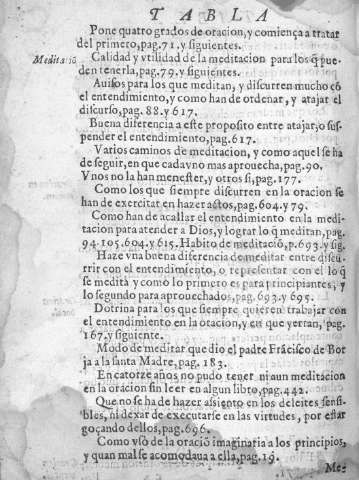 TABLA
Pone quatro grados de oracion, y comiença a tratar
del primero, pag. 71. y siguientes.
Meditaciō
Calidad y vtilidad de la meditacion para los q̃ pue-
den tenerla, pag. 79. y siguientes.
Auisos para los que meditan, y discurren mucho cō
el entendimiento, y como han de ordenar, y atajar el
discurso, pag. 88. y 617.
Buena diferencia a este proposito entre atajar, o sus-
pender el entendimiento, pag. 617.
Varios caminos de meditacion, y como aquel se ha
de seguir, en que cada vno mas aprouecha, pag. 90.
Vnos no la han menester, y otros si, pag. 177.
Como los que siempre discurren en la oracion se
han de exercitar en hazer actos, pag. 604. y 79.
Como han de acallar el entendimiento en la medi-
tacion para atender a Dios, y lograr lo q̃ meditan, pag.
94. 105. 604. y 615. Habito de meditaciō, p. 693. y sig.
Haze vna buena diferencia de meditar entre discu-
rrir con el entendimiēto, o representar con el lo q̃
se medita y como lo primero es para principiantes, y
lo segundo para aprouechados, pag. 693. y 695.
Dotrina para los que siempre quieren trabajar con
el entendimiento en la oracion, y en que yerran, pag.
167. y siguiente.
Modo de meditar que dio el padre Frācisco de Bor
ja a la santa Madre, pag. 183.
En catorze años no pudo tener ni aun meditacion
en la oracion sin leer en algun libro, pag. 442.
Que no se ha de hazer assiento en los deleites sensi-
bles, ni dexar de executarse en las virtudes, por estar
goçando dellos, pag. 696.
Como vsò de la oraciō imaginaria a los principios,
y quan mal se acomodaua a ella, pag. 19.
Me-